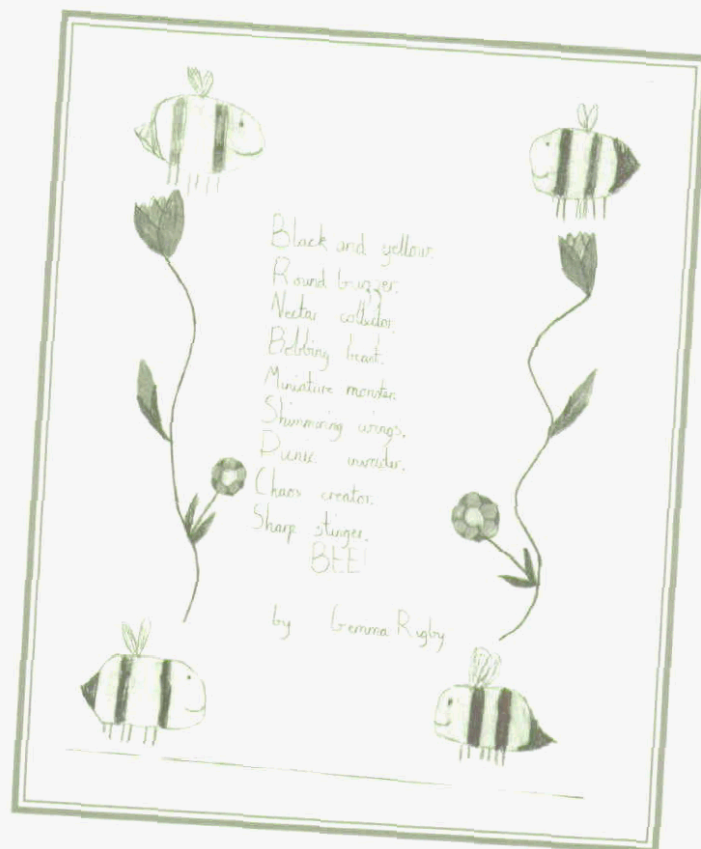 Black and yellow.
Round buzzer.
Nectar collector.
Bobbing beast.
Miniature monster.
Shimmering wings.
Picnic invader.
Chaos creator.
Sharp stinger.
BEE!
by Gemma Rigby